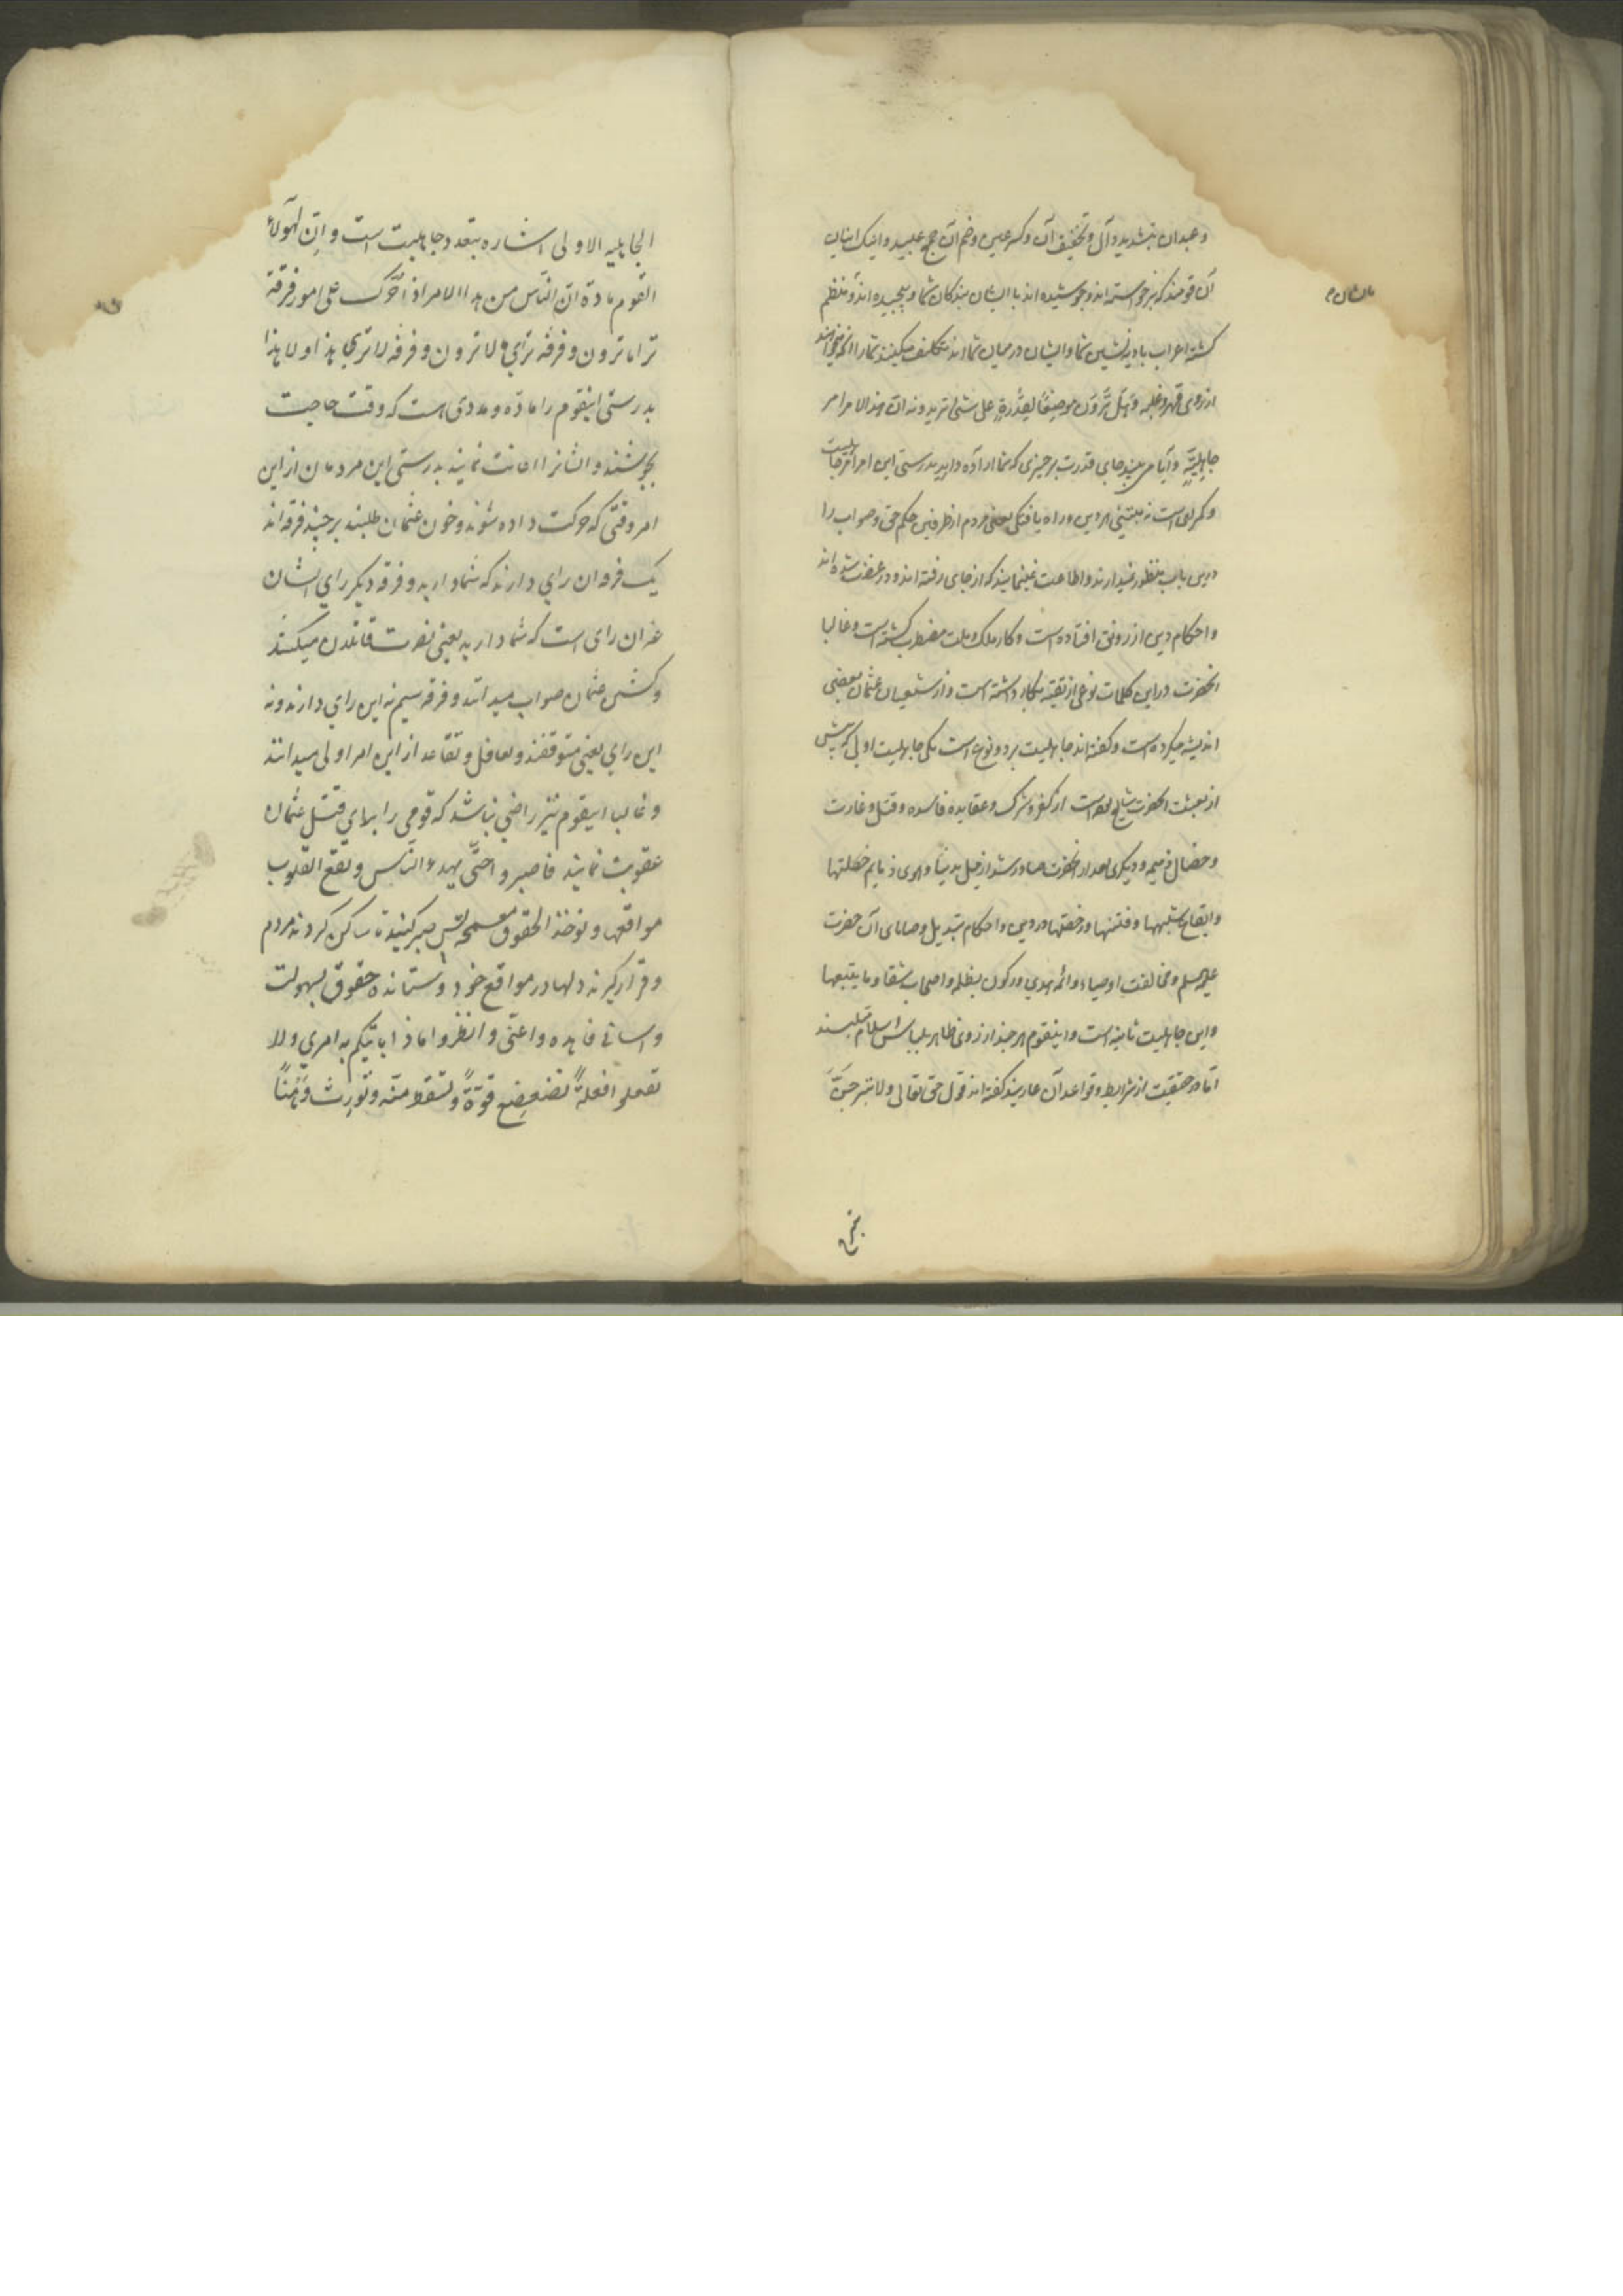 وعبدان بتشدید دال و تخفیف آن و کسر عین و ضم آن جمع عبید و اینک اینان
آن قومند که برخواسته اند و جوشیده اند با ایشان بندکان شما و پیچیده اند و منظم
کشته اعراب بادیه نشین شما و ایشان درمیان شما اند تکلیف میکنند شما را انچه میخواهند
از روی قهر و غلبه وَهَل تَرَوْنَ موضِعًا لِقُدْرَةٍ علی شئ تریدونه ان هذا الامر امر
جاهِلِیَّةٍ وآیا می بینید جای قدرت بر چیزی که شما اراده دارید بدرستی این امر امر جاهلیت
و کمراهی است نه مبتنی بر دین و راه یافتکی یعنی مردم از طرفین حکم حق و صواب را
درین باب منظور نمیدارند و اطاعت نمینمایند که از جای رفته اند و در غضب شده اند
و احکام دین از رونق افتاده است و کار ملک و ملت مضطرب کشته است و غالبا
انحضرت در این کلمات نوعی از تقیه بکار داشته است و از شیعیان عثمان بعضی
اندیشه میکرده است و کفته اند جاهلیت بر دو نوع است یکی جاهلیت اولی که پیش
از بعثت انحضرت شایع بوده است از کفر و شرک و عقایده فاسده و قتل و غارت
و خصال ذمیمه و دیکری بعد از انحضرت صادر شد از میل بدنیا و هوی و ذمایم خصلتها
و ایقاع شبهها و فتنها و رخصتها در دین و احکام تبدیل وصایای آن حضرت
علیه السلم و مخالفت اوصیاء و ائمه هدی و رکون بظلمه و اصحاب شقا و ما یتبعها
و این جاهلیت ثانیه است و اینقوم هر چند از روی ظاهر بلباس اسلام متلبسند
اما در حقیقت از شرایط و قواعد آن عاریند کفته اند قول حق تعالی ولا تبرجن تبرج
تبرج
الجاهلیه الاولی اشاره بتعدد جاهلیت است و اِنّ لهؤلآء
القوم مادة ان الناس من هذا الامر اذا حُرّک علی امور فرقة
ترا ما ترون و فرقه تری ما لا ترون و فرقه لا تری هذا و لا هذا
بدرستی اینقوم را مادّه و مددی است که وقت حاجت
بجوشند و ایشانرا اعانت نمایند بدرستی این مردمان از این
امر وقتی که حرکت داده شوند و خون عثمان طلبند بر چند فرقه اند
یک فرقه ان رای دارند که شما دارید و فرقه دیکر رای ایشان
غیر ان رای است که شما دارید یعنی نصرت قاتلان میکنند
و کشتن عثمان صواب میدانند و فرقه سیم نه این رای دارند و نه
این رای یعنی متوقفند و تغافل و تقاعد از این امر اولی میدانند
و غالبا اینقوم نیز راضی نباشد که قومی را برای قتل عثمان
عقوبت نمایند فاصبروا حتّی یهدء النّاس و تقع القلوب
مواقعها و توخذ الحقوق مسمحة پس صبر کنید تا ساکن کردند مردم
و قرار کیرند دلها در مواقع خود و ستانده حقوق بسهولت
و اسانی فاهدءوا عنّی و انظروا ماذا یاتیکم به امری ولا
تفعلوا فعلةً تضعضع قوّةً و تسقط منّه و تُورِث وَهْنًا